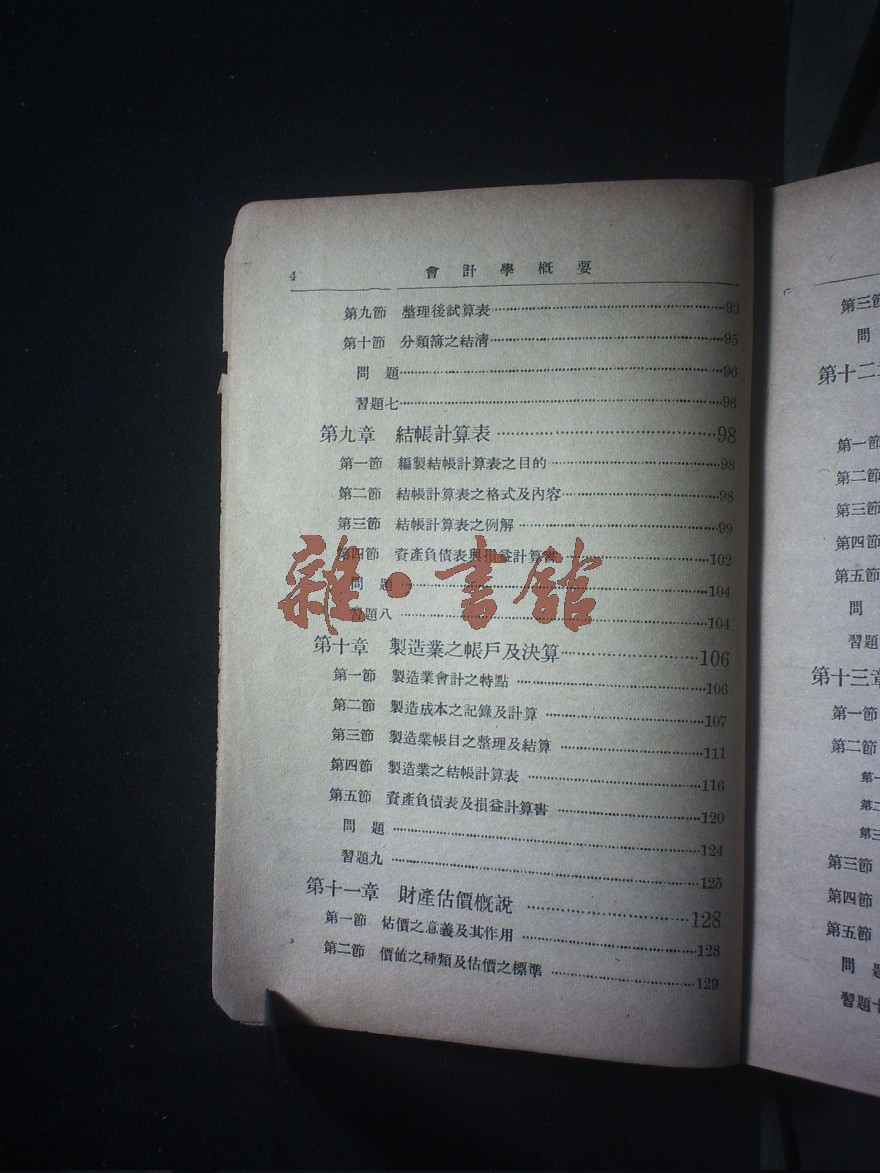 4 會計學概要
第九節 整理後試算表……93
第十節 分類簿之結清……95
問題……96
習題七……96
第九章 結帳計算表……98
第一節 編製結帳計算表之目的……98
第二節 結帳計算表之格式及內容……98
第三節 結帳計算表之例解……99
第四節 資產負債表與損益計算書……102
問題……104
習題八……104
第十章 製造業之帳戶及決算……106
第一節 製造業會計之特點……106
第二節 製造成本之記錄及計算……107
第三節 製造業帳目之整理及結算……111
第四節 製造業之結帳計算表……116
第五節 資產負債表及損益計算書……120
問題……124
習題九……125
第十一章 財產估價概說……128
第一節 估價之意義及其作用……128
第二節 價值之種類及估價之標準……129
雜·書館
第三節
問
第十二章
第一節
第二節
第三節
第四節
第五節
問
習題
第十三章
第一節
第二節
第一
第二
第三
第三節
第四節
第五節
問題
習題十